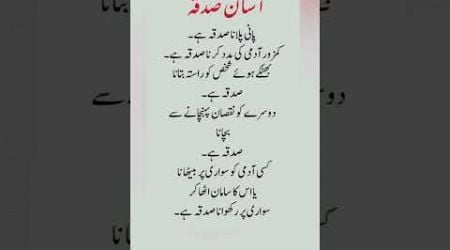 آسان صدقہ
پانی پلانا صدقہ ہے۔
کمزور آدمی کی مدد کرنا صدقہ ہے۔
بھٹکے ہوئے شخص کو راستہ بتانا
صدقہ ہے۔
دوسرے کو نقصان پہنچانے سے
بچانا
صدقہ ہے۔
کسی آدمی کو سواری پر بیٹھانا
یا اس کا سامان اٹھا کر
سواری پر رکھوانا صدقہ ہے۔